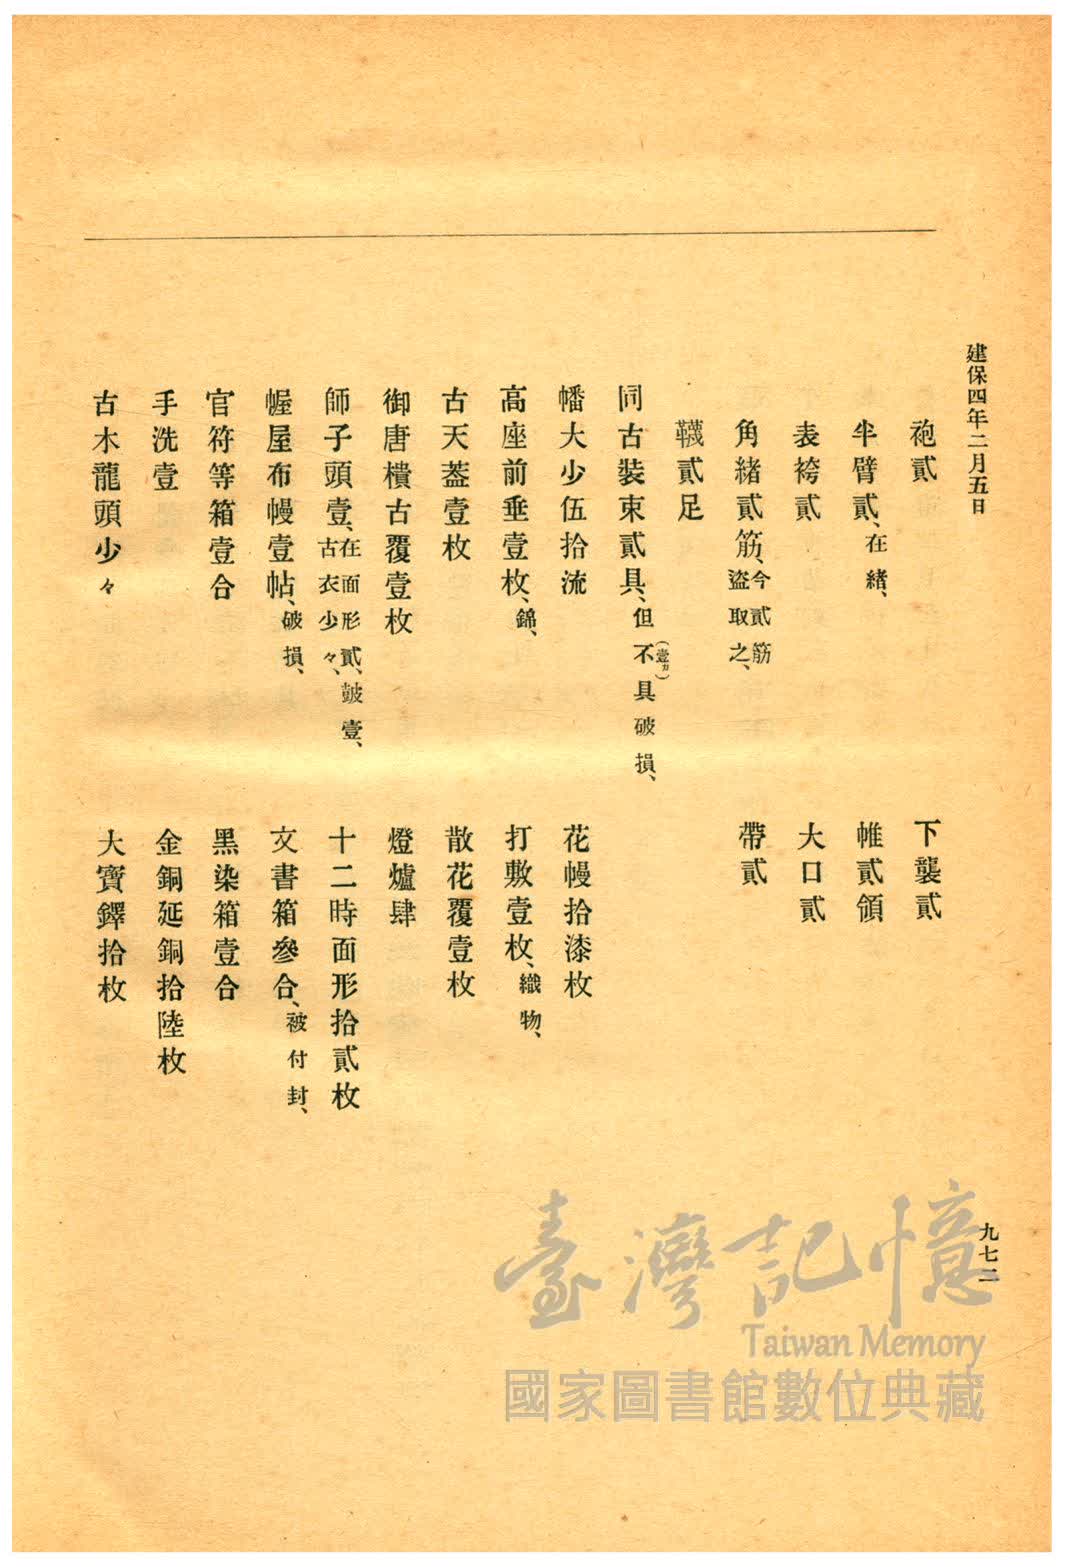 建保四年二月五日
九七二
袍貳　下襲貳
半臂貳、在緒、　帷貳領
表袴貳　大口貳
角緒貳筋、今貳筋盜取之、　帶貳
韈貳足
同古裝束貳具、但不(壹カ)具破損、
幡大少伍拾流　花幔拾漆枚
高座前垂壹枚、錦、　打敷壹枚、織物、
古天葢壹枚　散花覆壹枚
御唐樻古覆壹枚　燈爐肆
師子頭壹、在面形貳、皷壹、古衣少々、　十二時面形拾貳枚
幄屋布幔壹帖、破損、　文書箱參合、被付封、
官符等箱壹合　黑染箱壹合
手洗壹　金銅延銅拾陸枚
古木龍頭少々　大寶鐸拾枚
臺灣記憶
Taiwan Memory
國家圖書館數位典藏